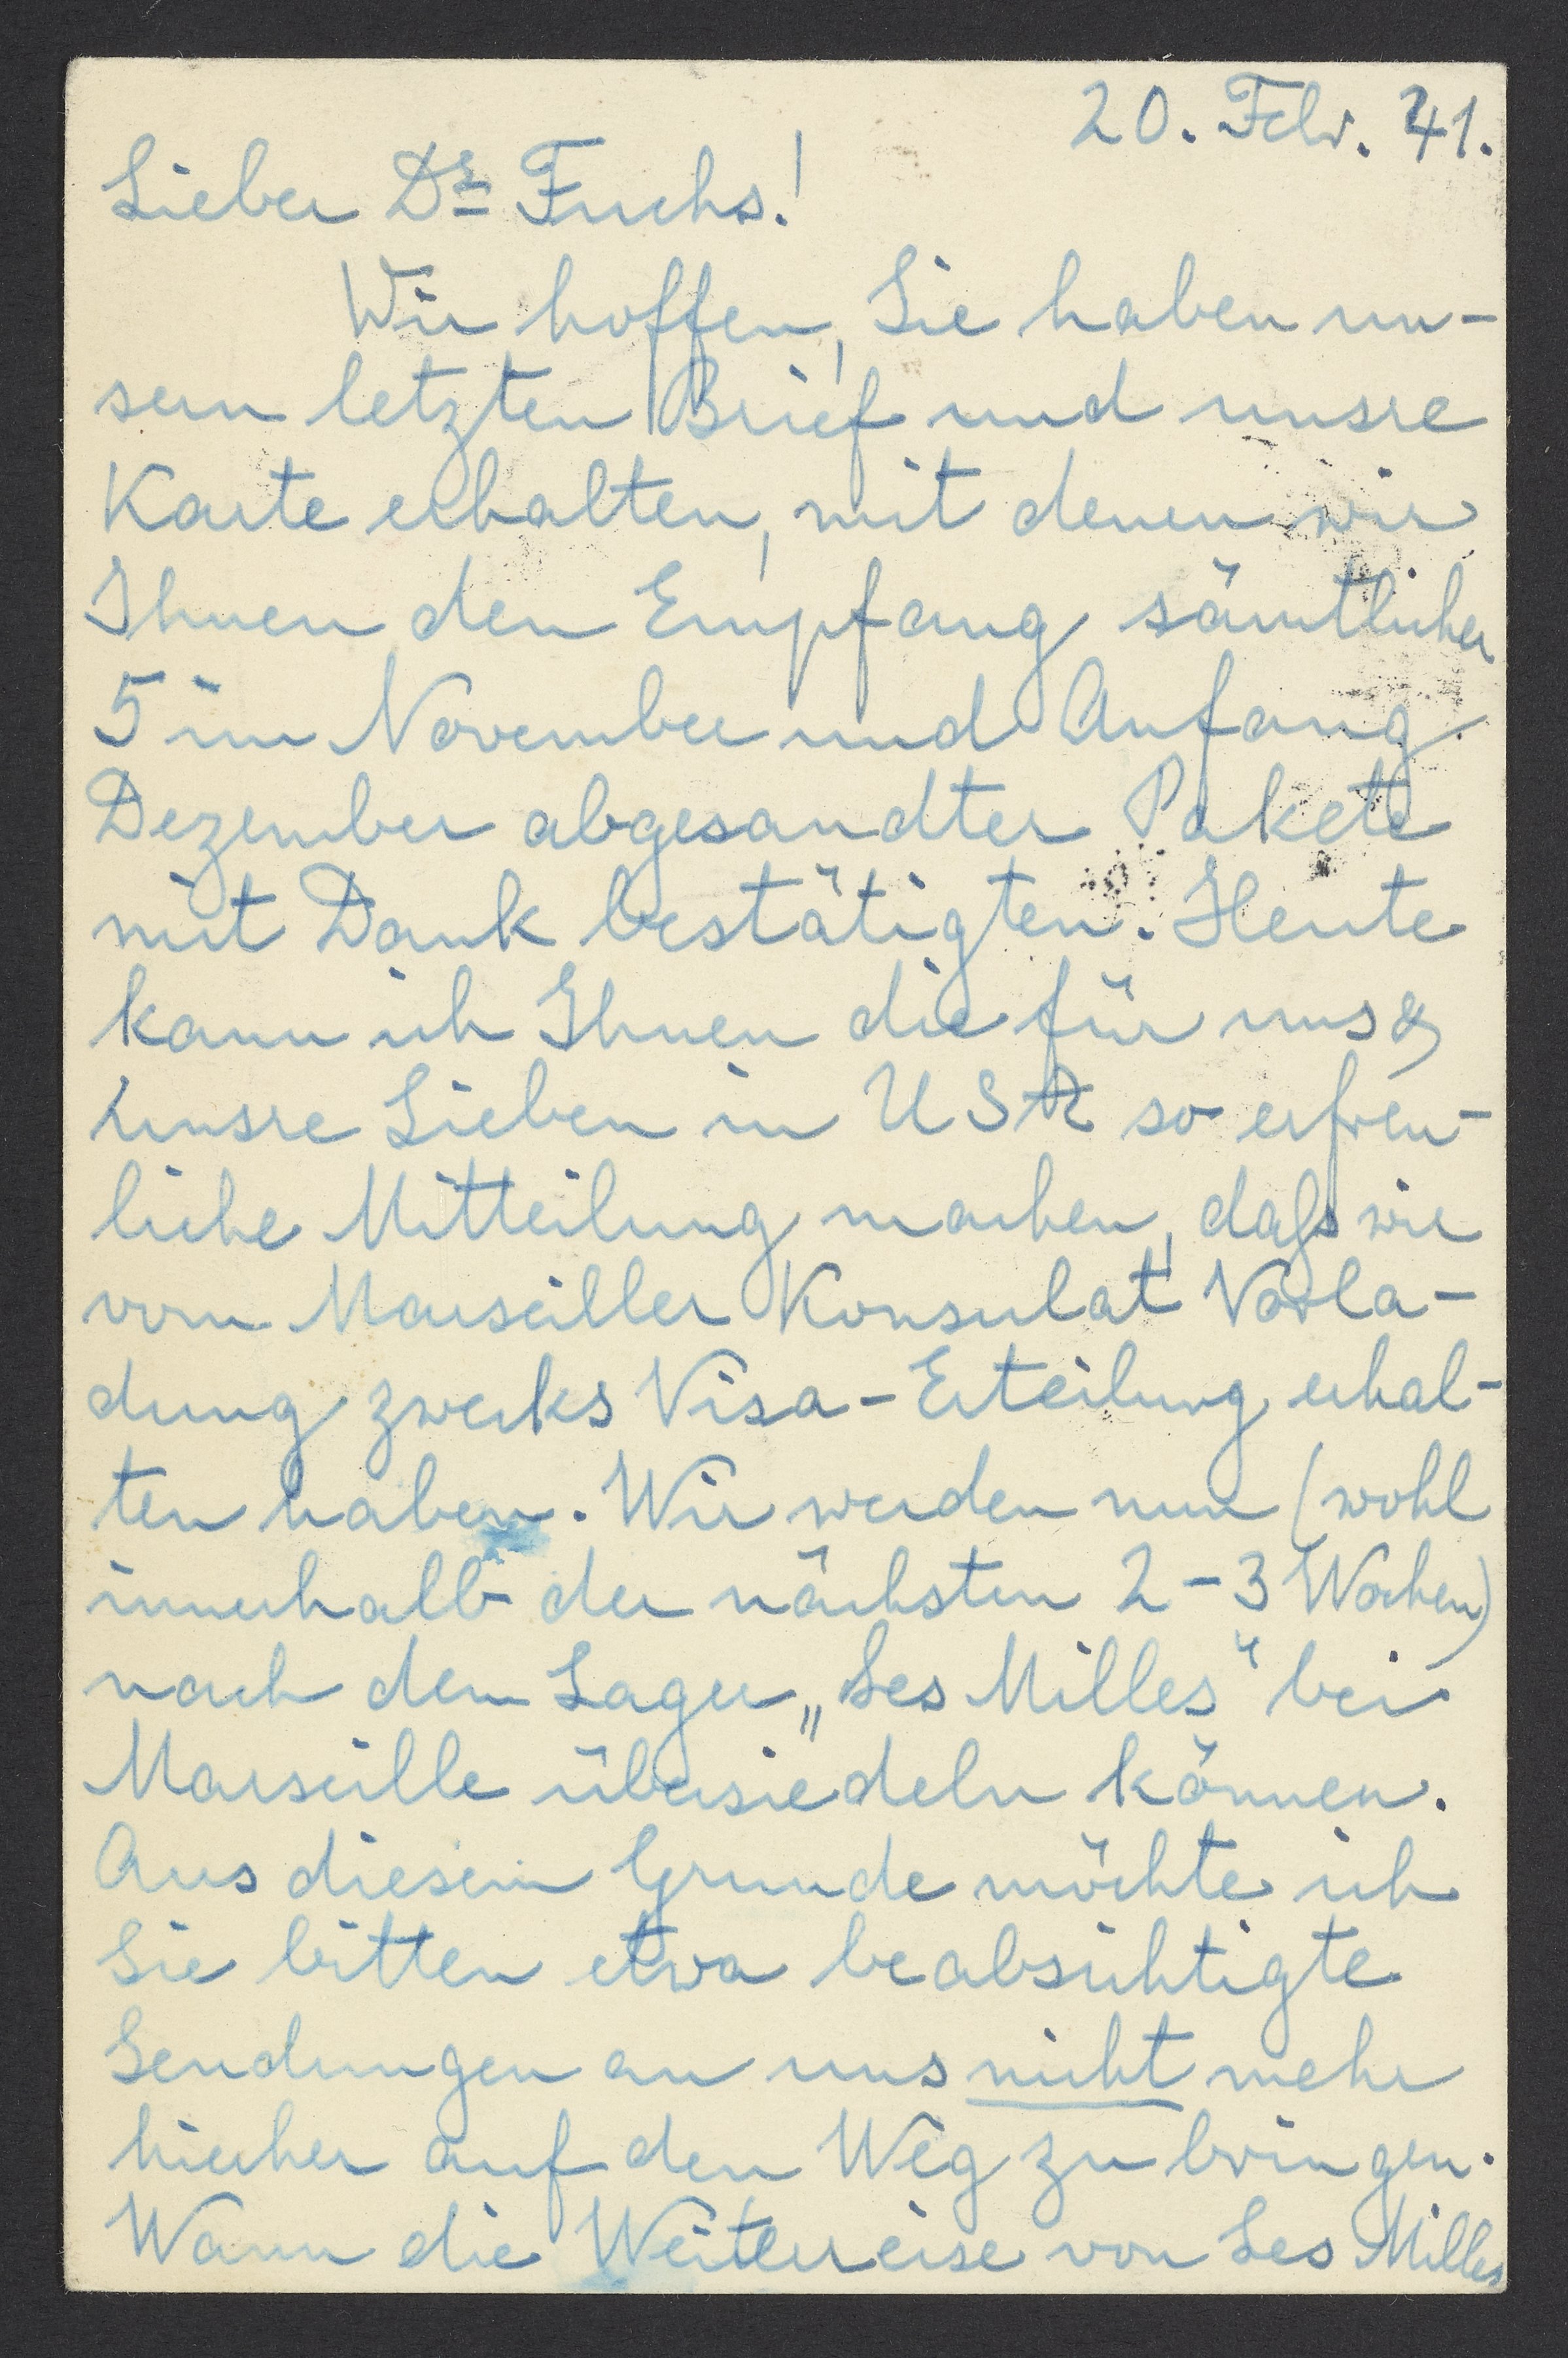 20. Febr. 41.
Lieber Dr Fuchs!
Wir hoffen, Sie haben un-
sern letzten Brief und unsre
Karte erhalten, mit denen wir
Ihnen den Empfang sämtlicher
5 im November und Anfang
Dezember abgesandter Pakete
mit Dank bestätigten. Heute
kann ich Ihnen die für uns &
unsre Lieben in USA so erfreu-
liche Mitteilung machen, dass wir
vom Marseiller Konsulat Vorla-
dung zwecks Visa-Erteilung erhal-
ten haben. Wir werden nun (wohl
innerhalb der nächsten 2-3 Wochen)
nach dem Lager „Les Milles" bei
Marseille übersiedeln können.
Aus diesem Grunde möchte ich
Sie bitten etwa beabsichtigte
Sendungen an uns nicht mehr
hierher auf den Weg zu bringen.
Wann die Weiterreise von Les Milles